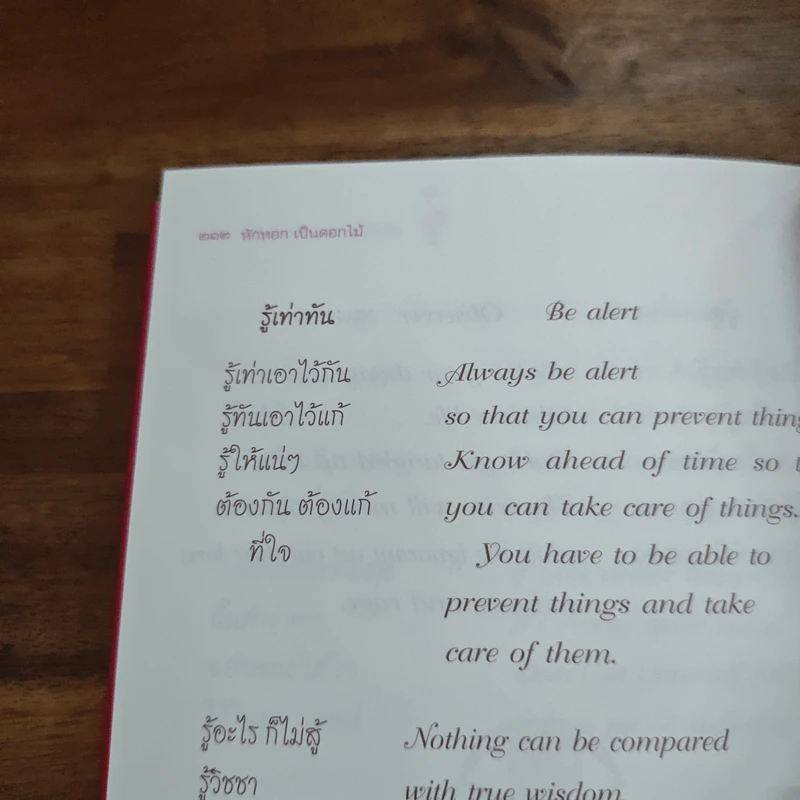 ๒๑๒ หักหอก เป็นดอกไม้
รู้เท่าทัน
รู้เท่าเอาไว้กัน
รู้ทันเอาไว้แก้
รู้ให้แน่ๆ
ต้องกัน ต้องแก้
ที่ใจ
Be alert
Always be alert
so that you can prevent thing
Know ahead of time so t
you can take care of things.
You have to be able to
prevent things and take
care of them.
รู้อะไร ก็ไม่สู้
รู้วิชชา
Nothing can be compared
with true wisdom